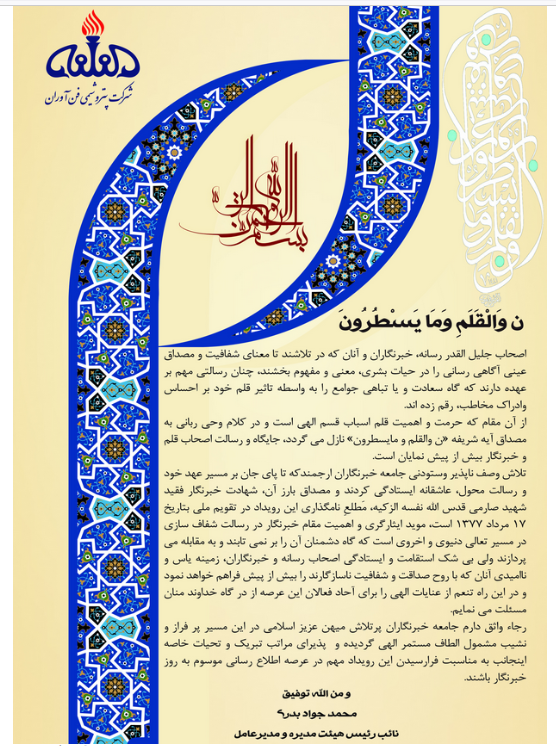 شرکت پتروشیمی فن آوران
بسم الله الرحمن الرحیم
ن وَالْقَلَمِ وَمَا یَسْطُرُونَ
اصحاب جلیل القدر رسانه، خبرنگاران و آنان که در تلاشند تا معنای شفافیت و مصداق
عینی آگاهی رسانی را در حیات بشری، معنی و مفهوم بخشند، چنان رسالتی مهم بر
عهده دارند که گاه سعادت و یا تباهی جوامع را به واسطه تاثیر قلم خود بر احساس
وادراک مخاطب، رقم زده اند.
از آن مقام که حرمت و اهمیت قلم اسباب قسم الهی است و در کلام وحی ربانی به
مصداق آیه شریفه «ن والقلم و مایسطرون» نازل می گردد، جایگاه و رسالت اصحاب قلم
و خبرنگار بیش از پیش نمایان است.
تلاش وصف ناپذیر وستودنی جامعه خبرنگاران ارجمندکه تا پای جان بر مسیر عهد خود
و رسالت محول، عاشقانه ایستادگی کردند و مصداق بارز آن، شهادت خبرنگار فقید
شهید صارمی قدس الله نفسه الزکیه، مَطلعِ نامگذاری این رویداد در تقویم ملی بتاریخ
۱۷ مرداد ۱۳۷۷ است، موید ایثارگری و اهمیت مقام خبرنگار در رسالت شفاف سازی
در مسیر تعالی دنیوی و اخروی است که گاه دشمنان آن را بر نمی تابند و به مقابله می
پردازند ولی بی شک استقامت و ایستادگی اصحاب رسانه و خبرنگاران، زمینه یاس و
ناامیدی آنان که با روح صداقت و شفافیت ناسازگارند را بیش از پیش فراهم خواهد نمود
و در این راه تنعم از عنایات الهی را برای آحاد فعالان این عرصه از در گاه خداوند منان
مسئلت می نمایم.
رجاء واثق دارم جامعه خبرنگاران پرتلاش میهن عزیز اسلامی در این مسیر پر فراز و
نشیب مشمول الطاف مستمر الهی گردیده و پذیرای مراتب تبریک و تحیات خاصه
اینجانب به مناسبت فرارسیدن این رویداد مهم در عرصه اطلاع رسانی موسوم به روز
خبرنگار باشند.
و من الله توفیق
محمد جواد بدری
نائب رئیس هیئت مدیره و مدیرعامل